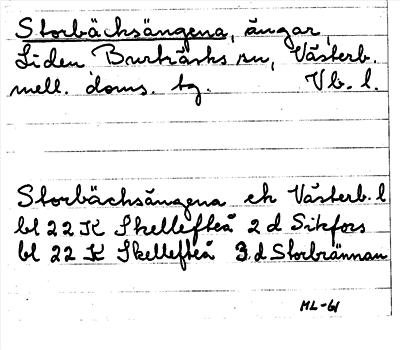 Storbäcksängena, ängar,
Liden Burträsks sn, Västerb.
mell. doms. tg. Vb. l.
Storbäcksängena ek Västerb. l
bl 22 K Skellefteå 2 d Sikfors
bl 22 K Skellefteå 3 d Storbrännan
ML-61